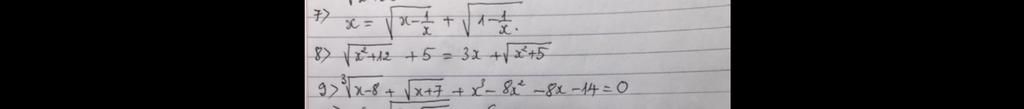 7> x = √(x - 1/x) + √(1 - 1/x).
8> √(x²+12) + 5 = 3x + √(x²+5)
9> ³√(x-8) + √(x+7) + x³ - 8x² - 8x - 14 = 0